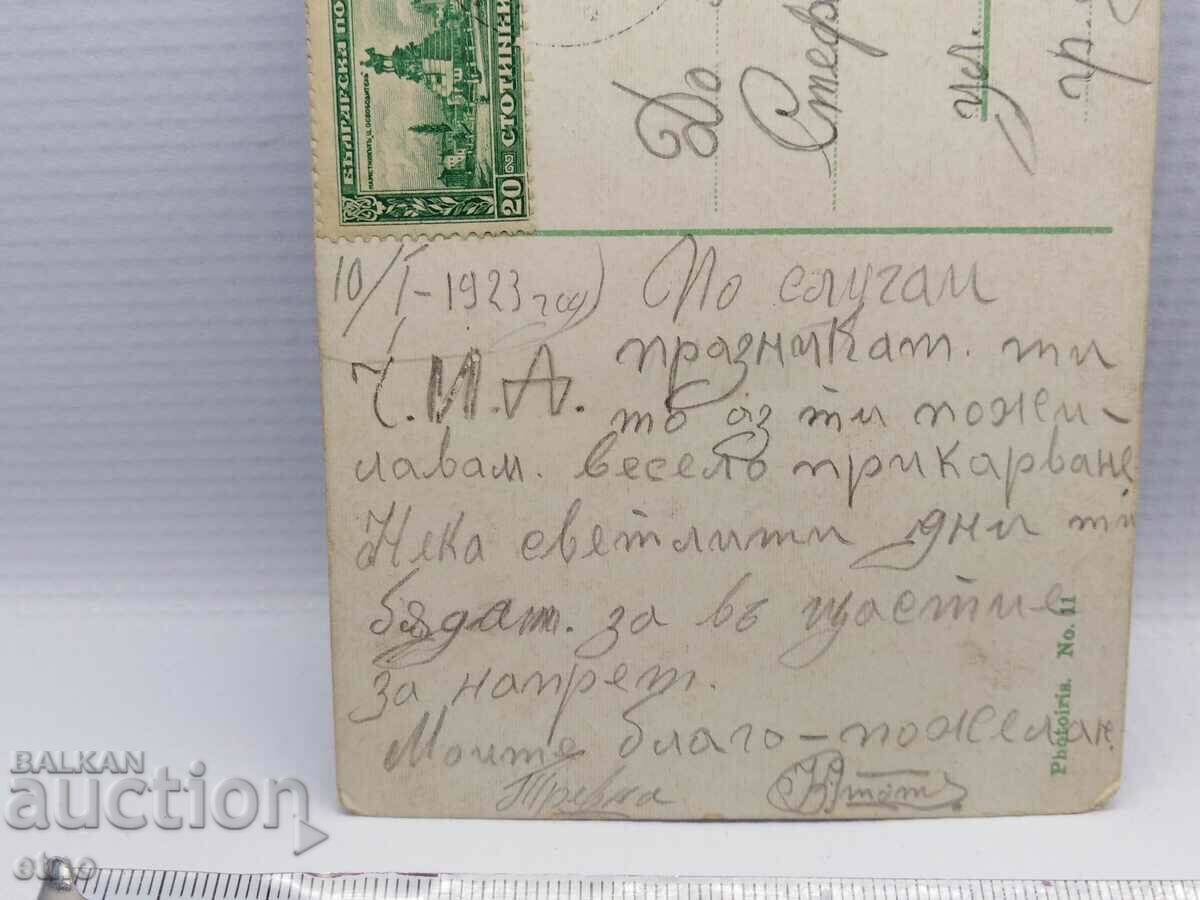 БЪЛГАРСКА ПО
ПАМЕТНИКЪТЪ Ц. ОСВОБОДИТЕЛЬ
20 СТОТИНКИ
До
Стеф
ул.
гр.
10/I-1923 год)
По случам
Ч.И.А. празникат. ти
то аз ти поже-
лавам. весело прикарване
Нека светлити дни ти
бядат. за въ щастие
за напрет.
Моите благо-пожелан.
Трявна
Photoiris. No. 11
BALKAN
auction
etno